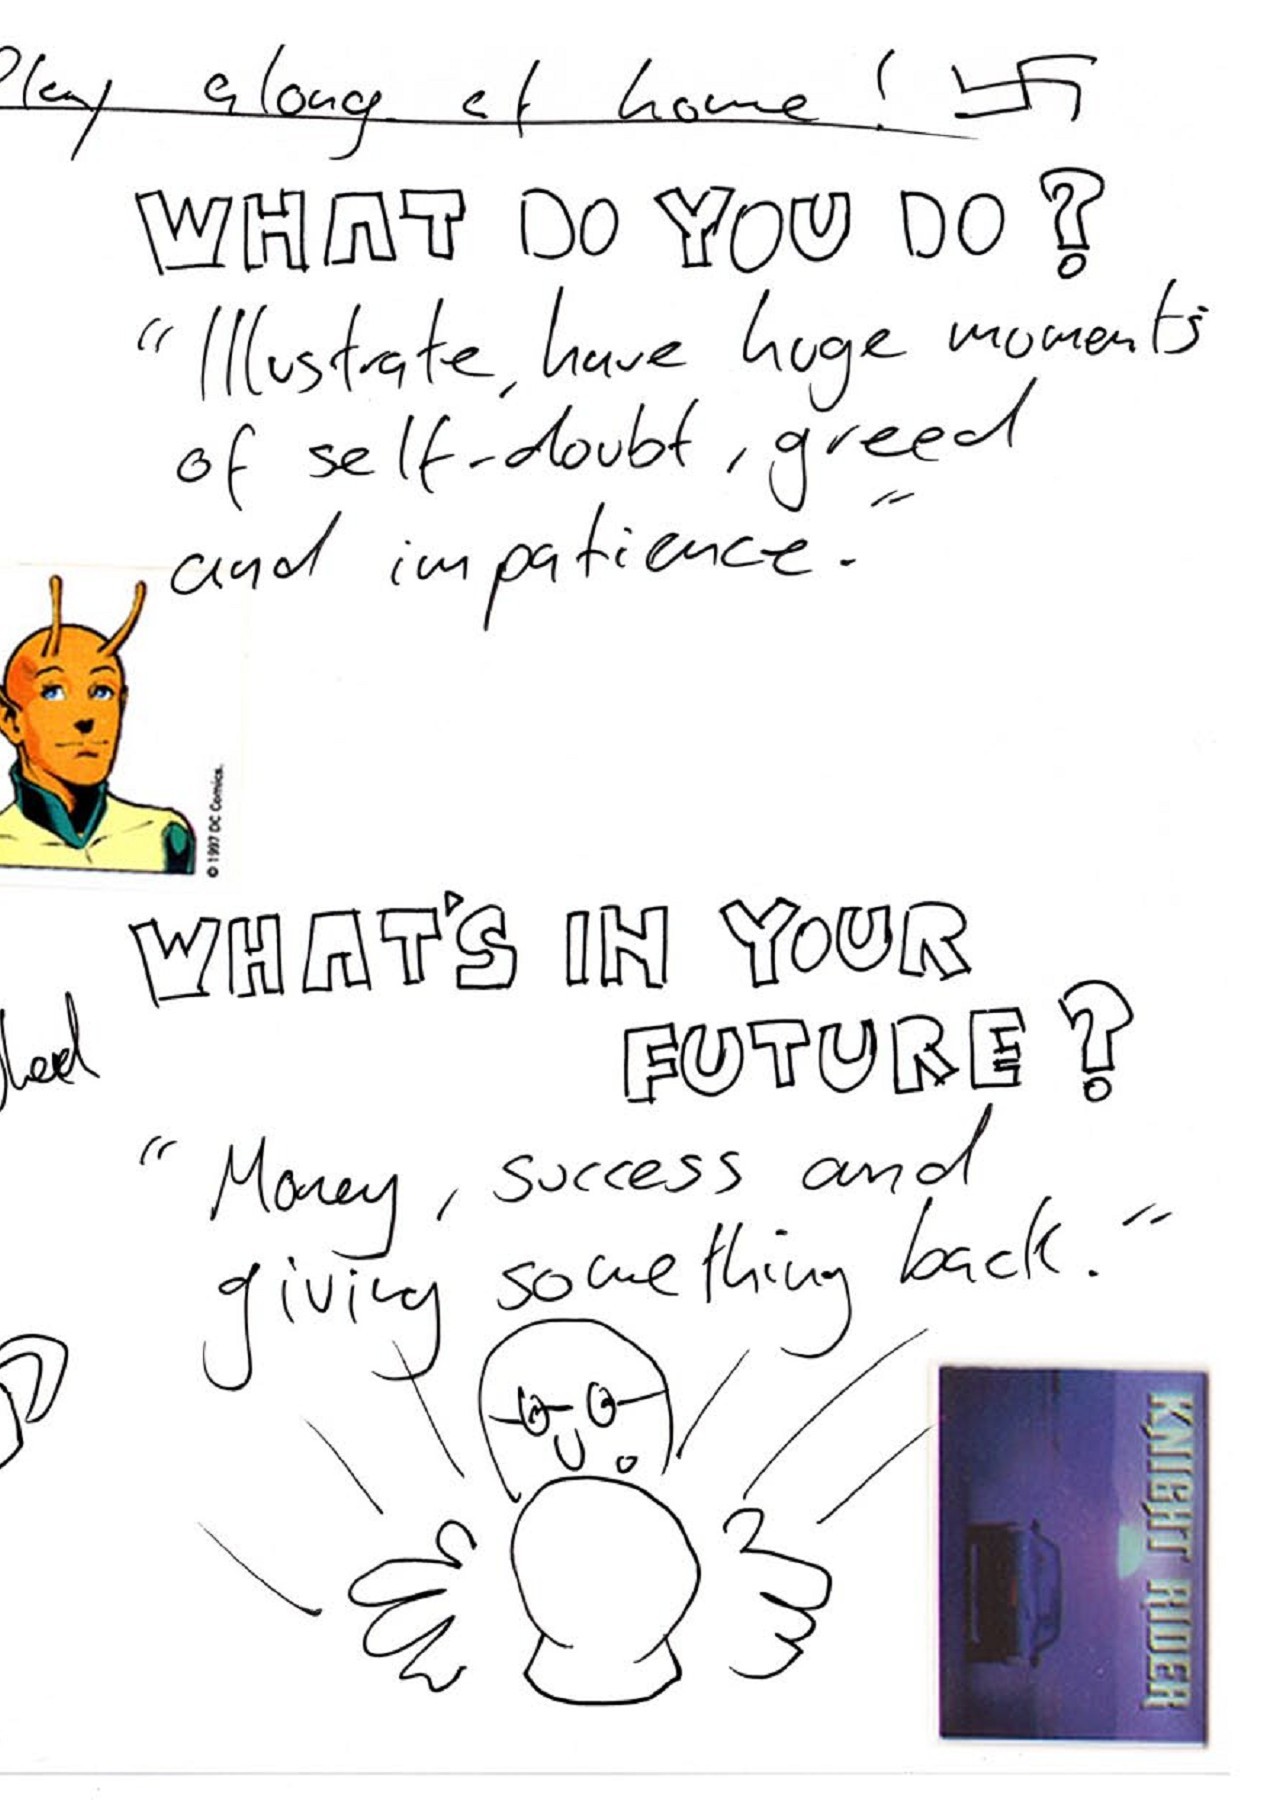 Play along at home!
WHAT DO YOU DO?
"Illustrate, have huge moments
of self-doubt, greed
and impatience."
© 1997 DC Comics.
WHAT'S IN YOUR
FUTURE?
"Money, success and
giving something back."
KNIGHT RIDER